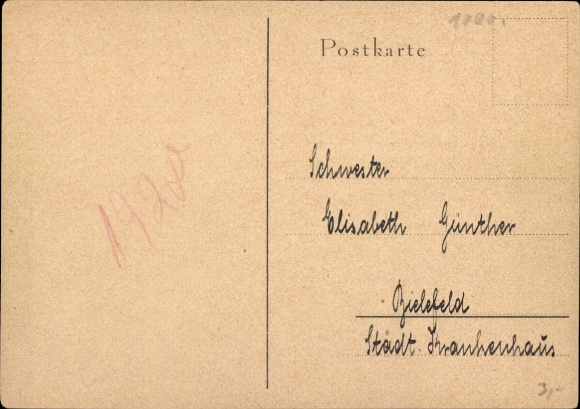 Postkarte
Schwester
Elisabeth Günther
Bielefeld
Städt. Krankenhaus
3,-